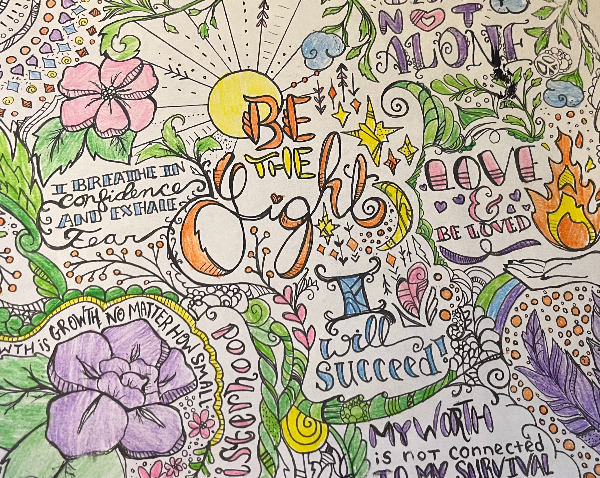 NOT
ALONE
BE
THE
Light
I BREATHE IN
confidence
AND EXHALE
Fear
LOVE
&
BE LOVED
I
will
SUCCEED!
IS GROWTH NO MATTER HOW SMALL
MY WORTH
is not connected
TO MY SURVIVAL